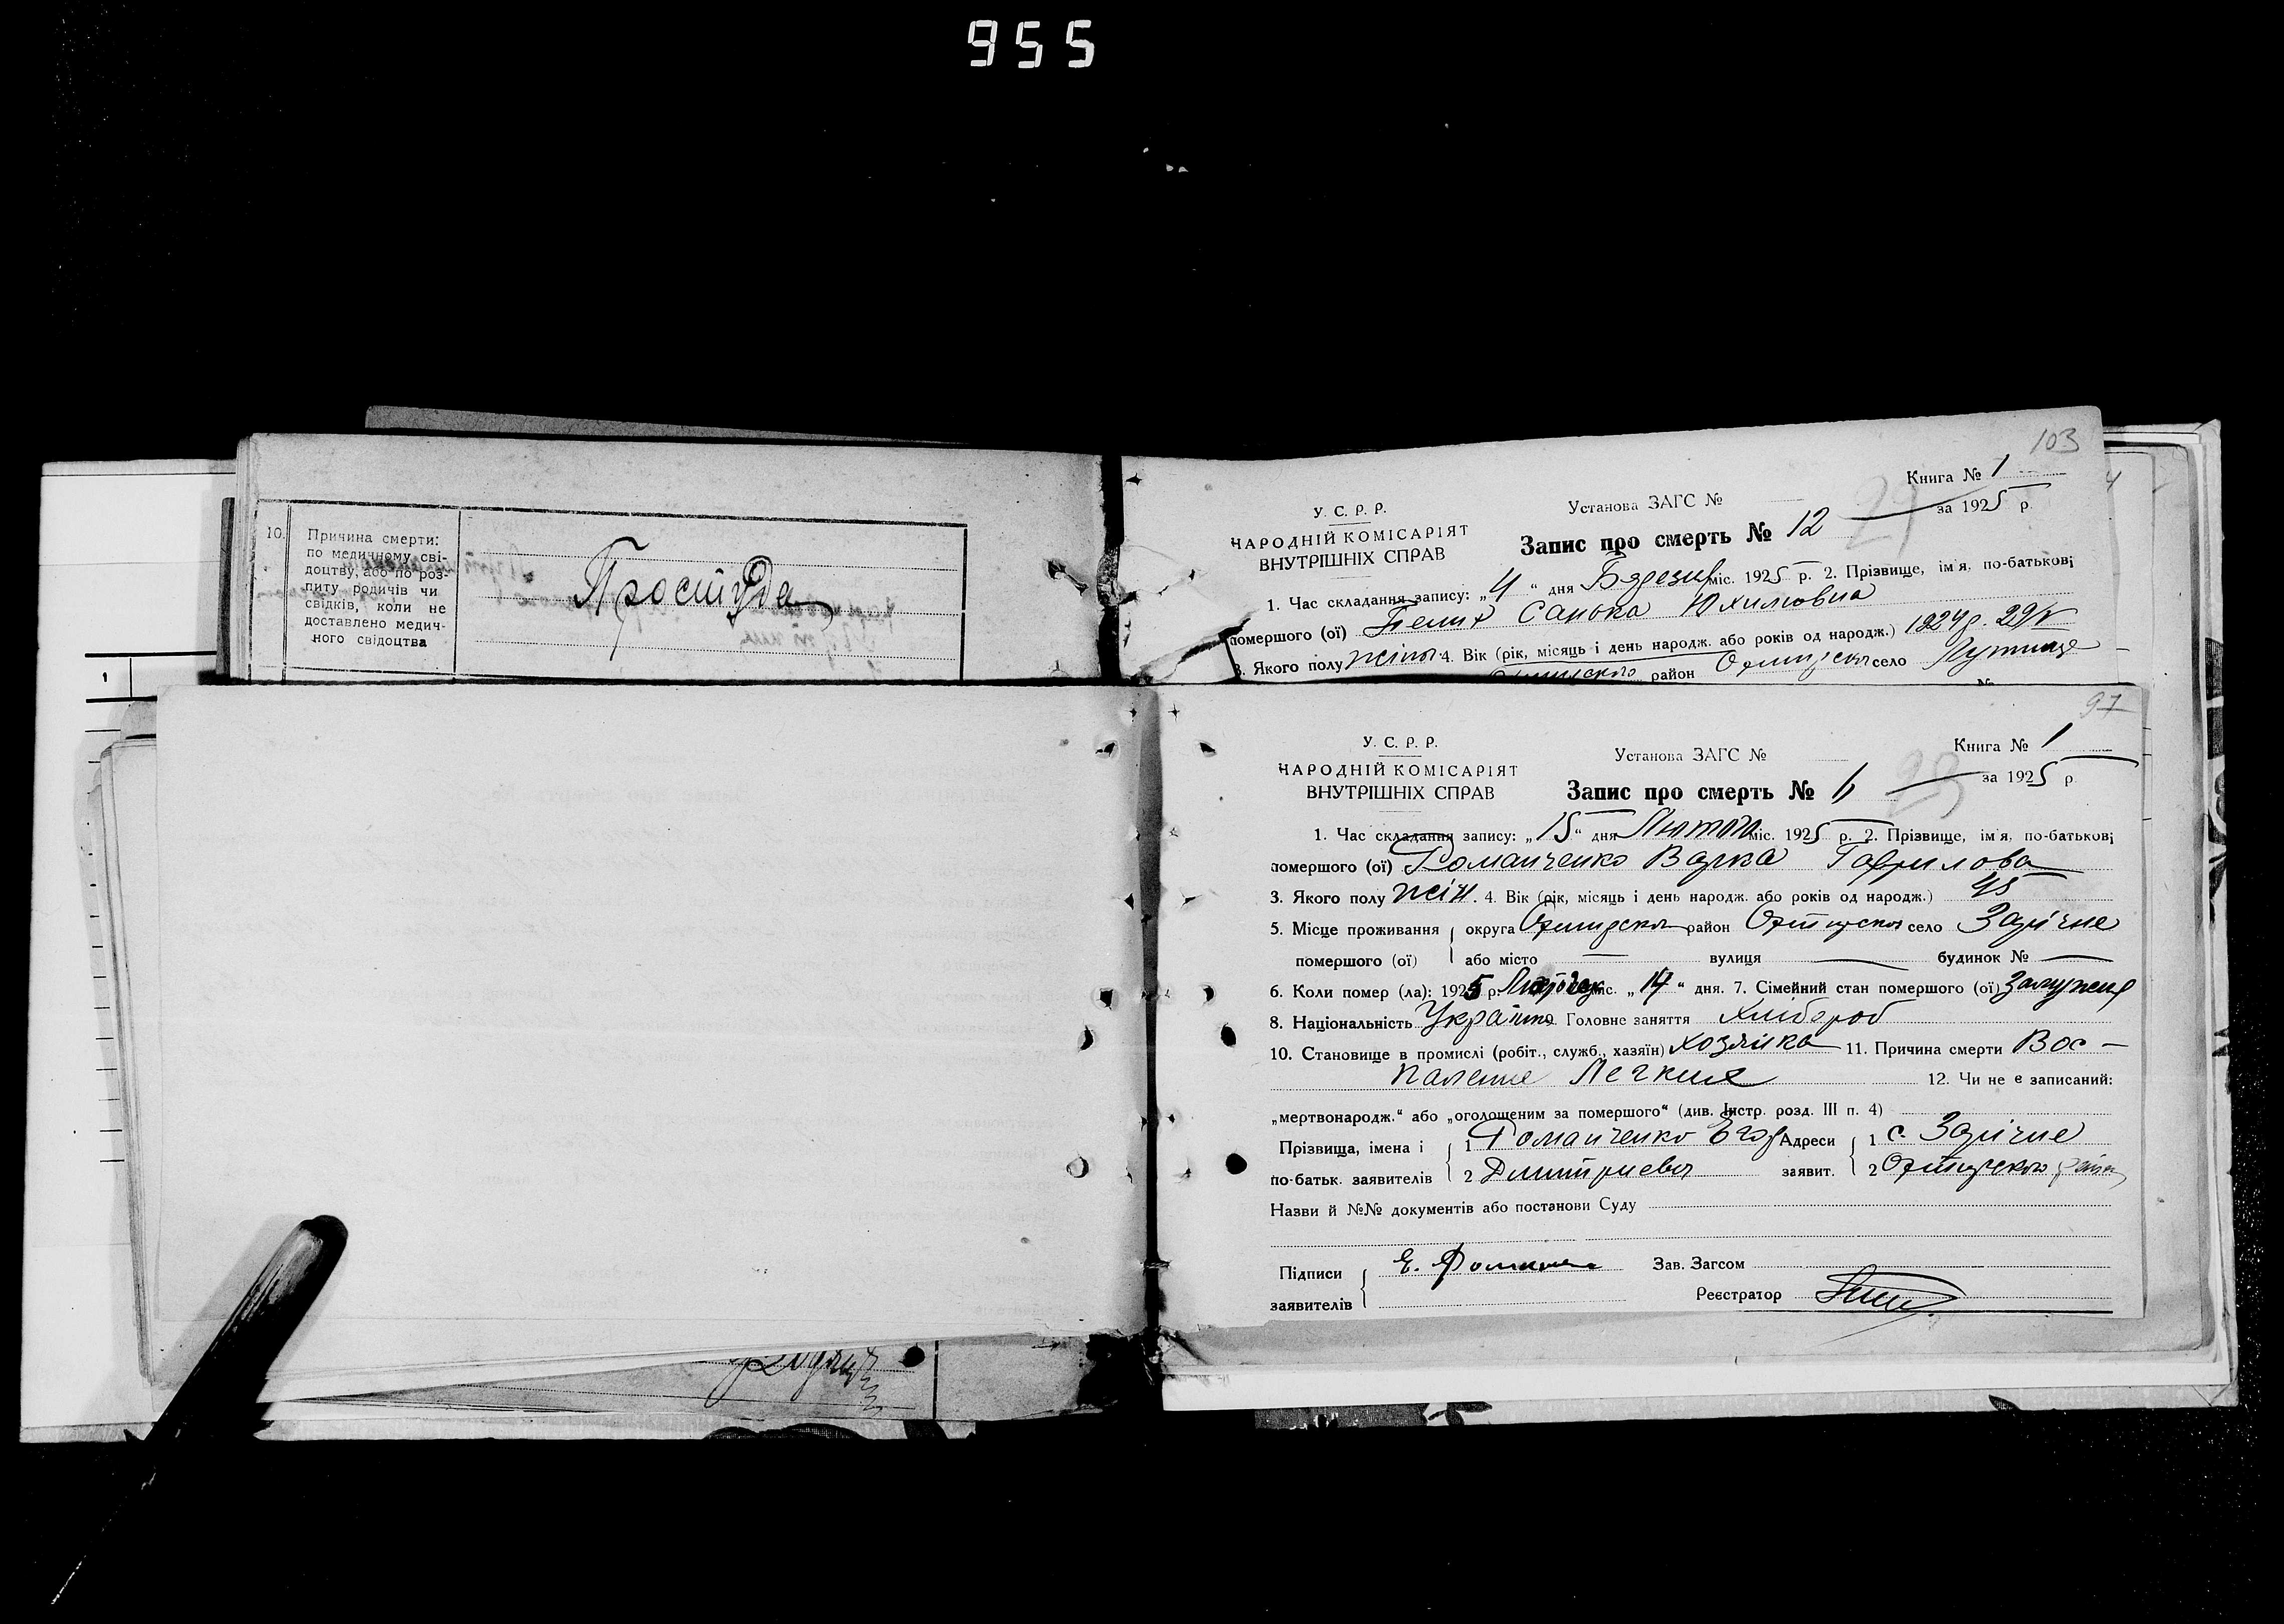 955
10.
Причина смерти:
по медичному сві-
доцтву, або по роз-
питу родичів чи
свідків, коли не
доставлено медич-
ного свідоцтва
Простуда
1
103
Книга № 1
У. С. Р. Р.
Установа ЗАГС №
за 1925 р.
НАРОДНІЙ КОМІСАРІЯТ
ВНУТРІШНІХ СПРАВ
Запис про смерть № 12
1. Час складання запису: „4“ дня міс. 1925 р. 2. Прізвище, ім'я, по-батькові
помершого (ої) Санька Юхимовна
3. Якого полу 4. Вік (рік, місяць і день народж. або років од народж.) 1924 р. 29/V
район село
97
У. С. Р. Р.
Установа ЗАГС №
Книга № 1
НАРОДНІЙ КОМІСАРІЯТ
ВНУТРІШНІХ СПРАВ
Запис про смерть № за 1925 р.
1. Час складання запису: „15“ дня Лютого міс. 1925 р. 2. Прізвище, ім'я, по-батькові
помершого (ої) Романченко Варка Гаврилова
3. Якого полу жін. 4. Вік (рік, місяць і день народж. або років од народж.) 45
5. Місце проживання округа район село Зарічне
помершого (ої) або місто — вулиця — будинок № —
6. Коли помер (ла): 1925 р. міс. „14“ дня. 7. Сімейний стан помершого (ої) Замужня
8. Національність 9. Головне заняття Хлібороб
10. Становище в промислі (робіт., служб., хазяїн) Хозяйка 11. Причина смерти Вос-
паление Легких 12. Чи не є записаний:
„мертвонародж.“ або „оголошеним за помершого“ (див. Інстр. розд. III п. 4)
Прізвища, імена і 1 Романченко Егор Адреси 1 с. Зарічне
по-батьк. заявителів 2 Димитриевич заявит. 2
Назви й №№ документів або постанови Суду
Підписи Зав. Загсом
заявителів Реєстратор